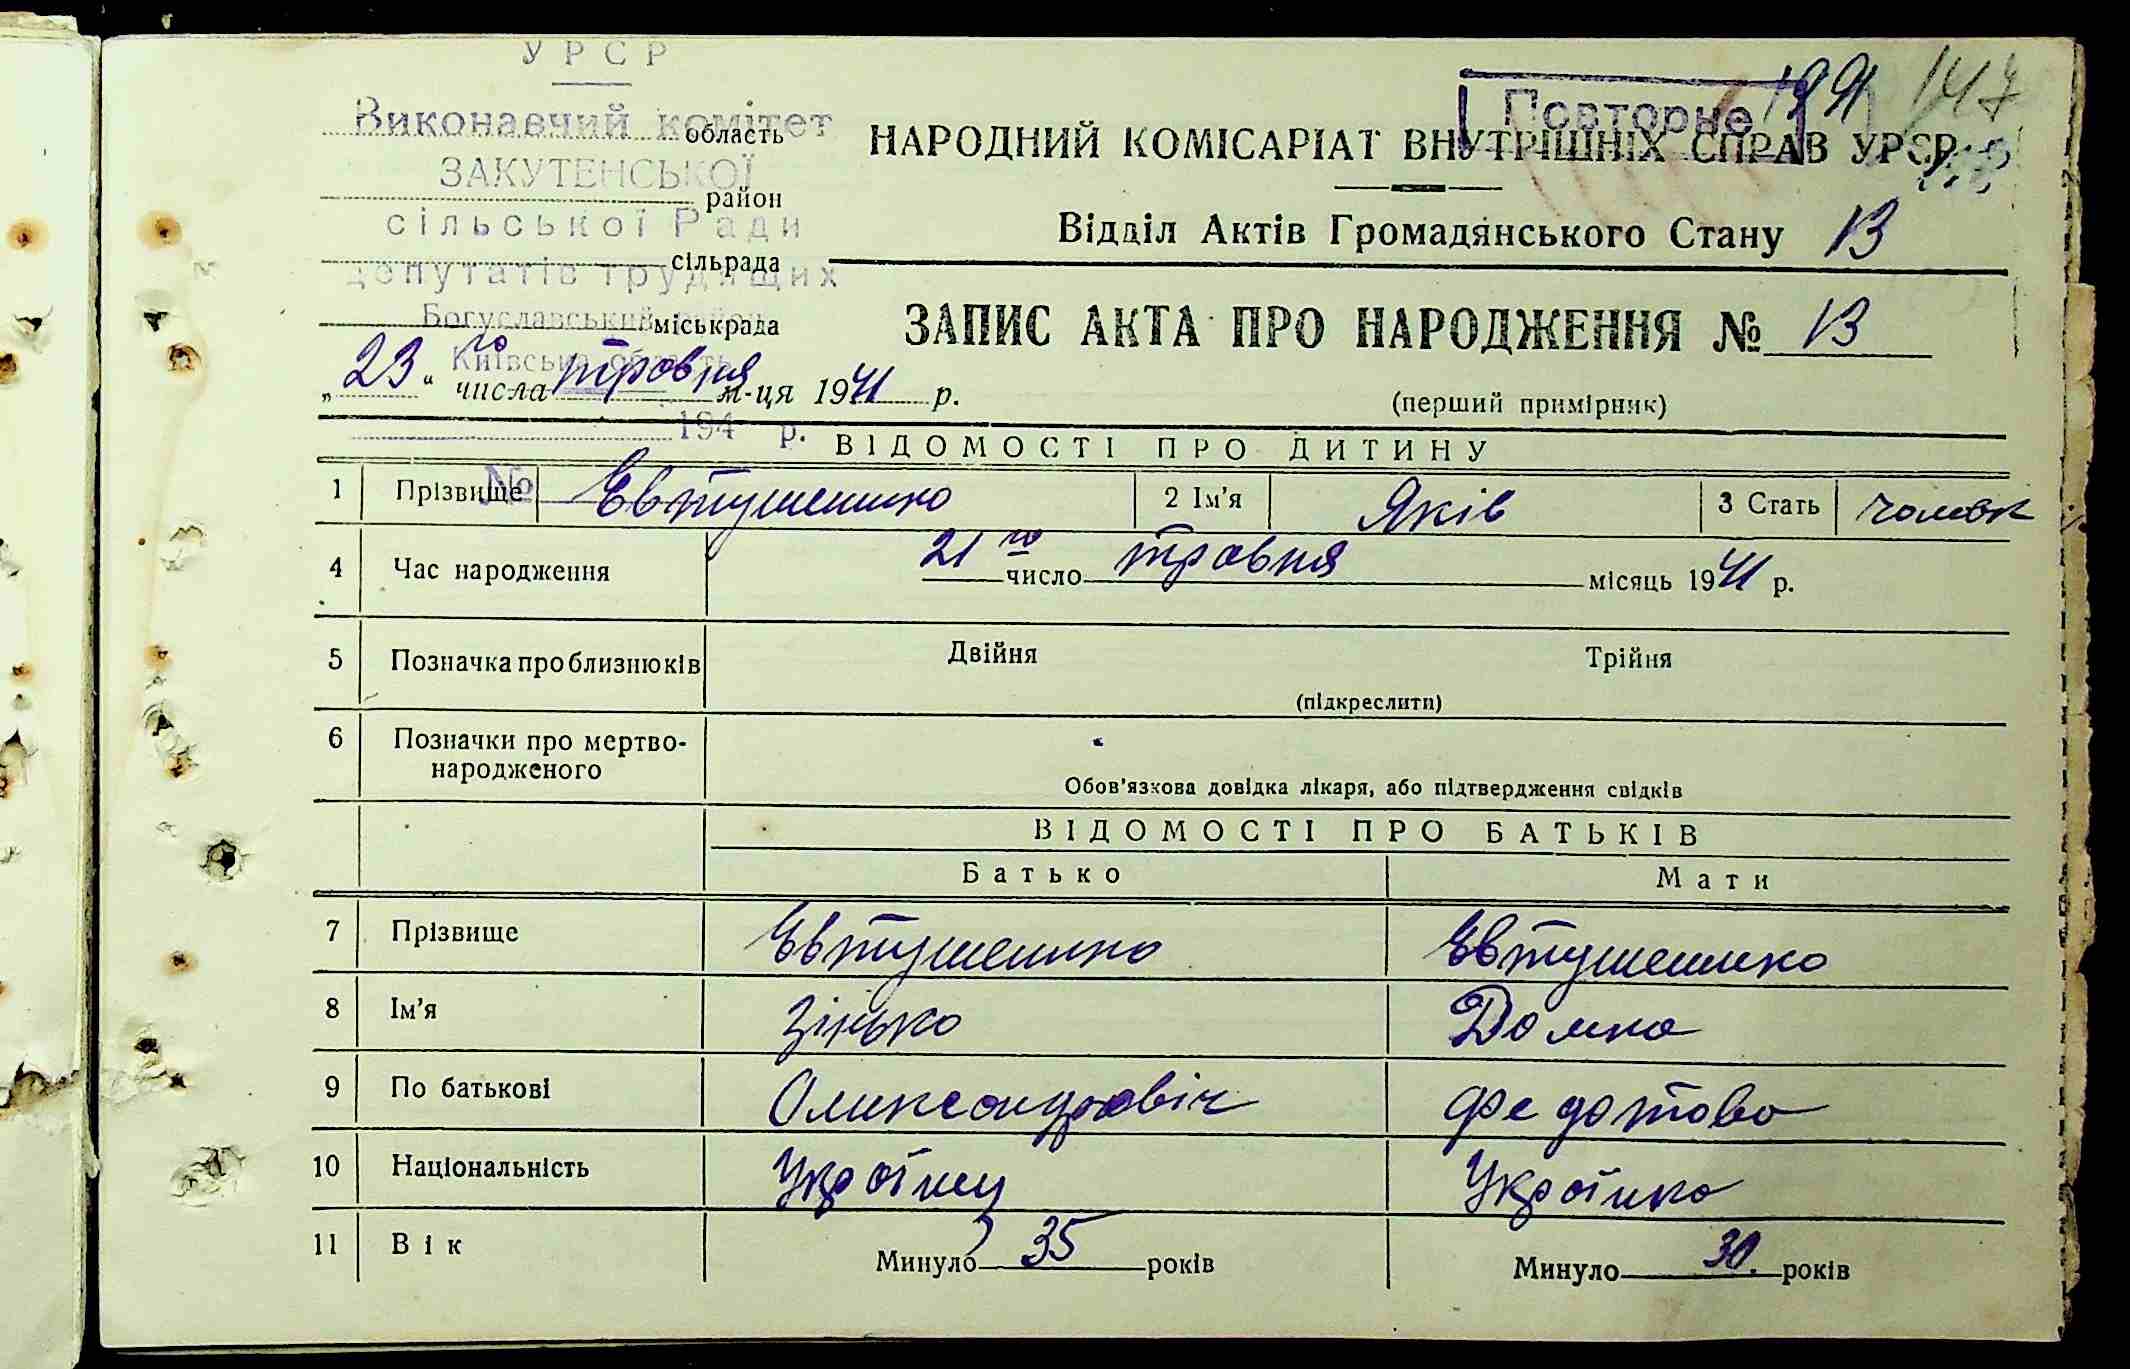 УРСР
Виконавчий комітет область
ЗАКУТЕНСЬКОЇ
район
сільської Ради
сільрада
депутатів трудящих
Богуславський район міськрада
Київська область
"23го" числа травня м-ця 1941 р.
194 р.
№
Повторне
191 147
НАРОДНИЙ КОМІСАРІАТ ВНУТРІШНІХ СПРАВ УРСР
Відділ Актів Громадянського Стану 13
ЗАПИС АКТА ПРО НАРОДЖЕННЯ № 13
(перший примірник)
ВІДОМОСТІ ПРО ДИТИНУ
1 Прізвище Євтушенко 2 Ім'я Яків 3 Стать чоловк
4 Час народження 21го число травня місяць 1941 р.
5 Позначка про близнюків Двійня Трійня
(підкреслити)
6 Позначки про мертво-
народженого
Обов'язкова довідка лікаря, або підтвердження свідків
ВІДОМОСТІ ПРО БАТЬКІВ
Батько Мати
7 Прізвище Євтушенко Євтушенко
8 Ім'я Зінько Домка
9 По батькові Олександровіч Федотова
10 Національність Українец Українка
11 Вік Минуло 35 років Минуло 30. років